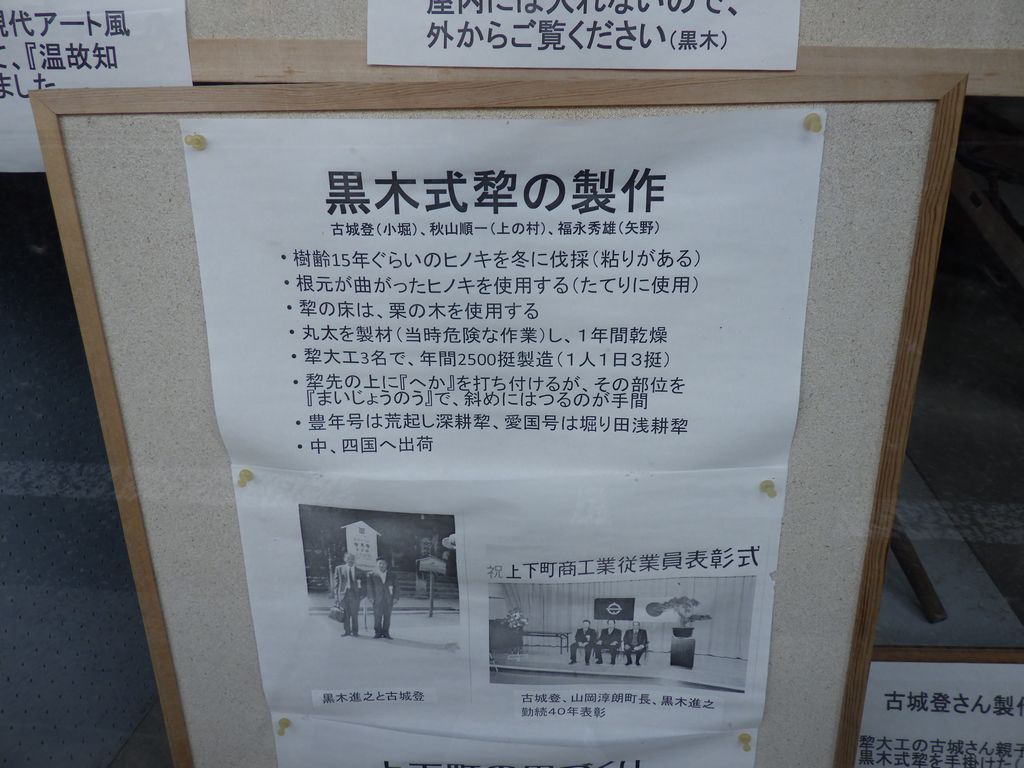 現代アート風
て、『温故知
ました
屋内には入れないので、
外からご覧ください(黒木)
黒木式犂の製作
古城登(小堀)、秋山順一(上の村)、福永秀雄(矢野)
・樹齢15年ぐらいのヒノキを冬に伐採(粘りがある)
・根元が曲がったヒノキを使用する(たてりに使用)
・犂の床は、栗の木を使用する
・丸太を製材(当時危険な作業)し、1年間乾燥
・犂大工3名で、年間2500挺製造(1人1日3挺)
・犂先の上に『へか』を打ち付けるが、その部位を
『まいじょうのう』で、斜めにはつるのが手間
・豊年号は荒起し深耕犂、愛国号は堀り田浅耕犂
・中、四国へ出荷
祝上下町商工業従業員表彰式
黒木進之と古城登
古城登、山岡淳朗町長、黒木進之
勤続40年表彰
古城登さん製作
犂大工の古城さん親子
黒木式犂を手掛けた